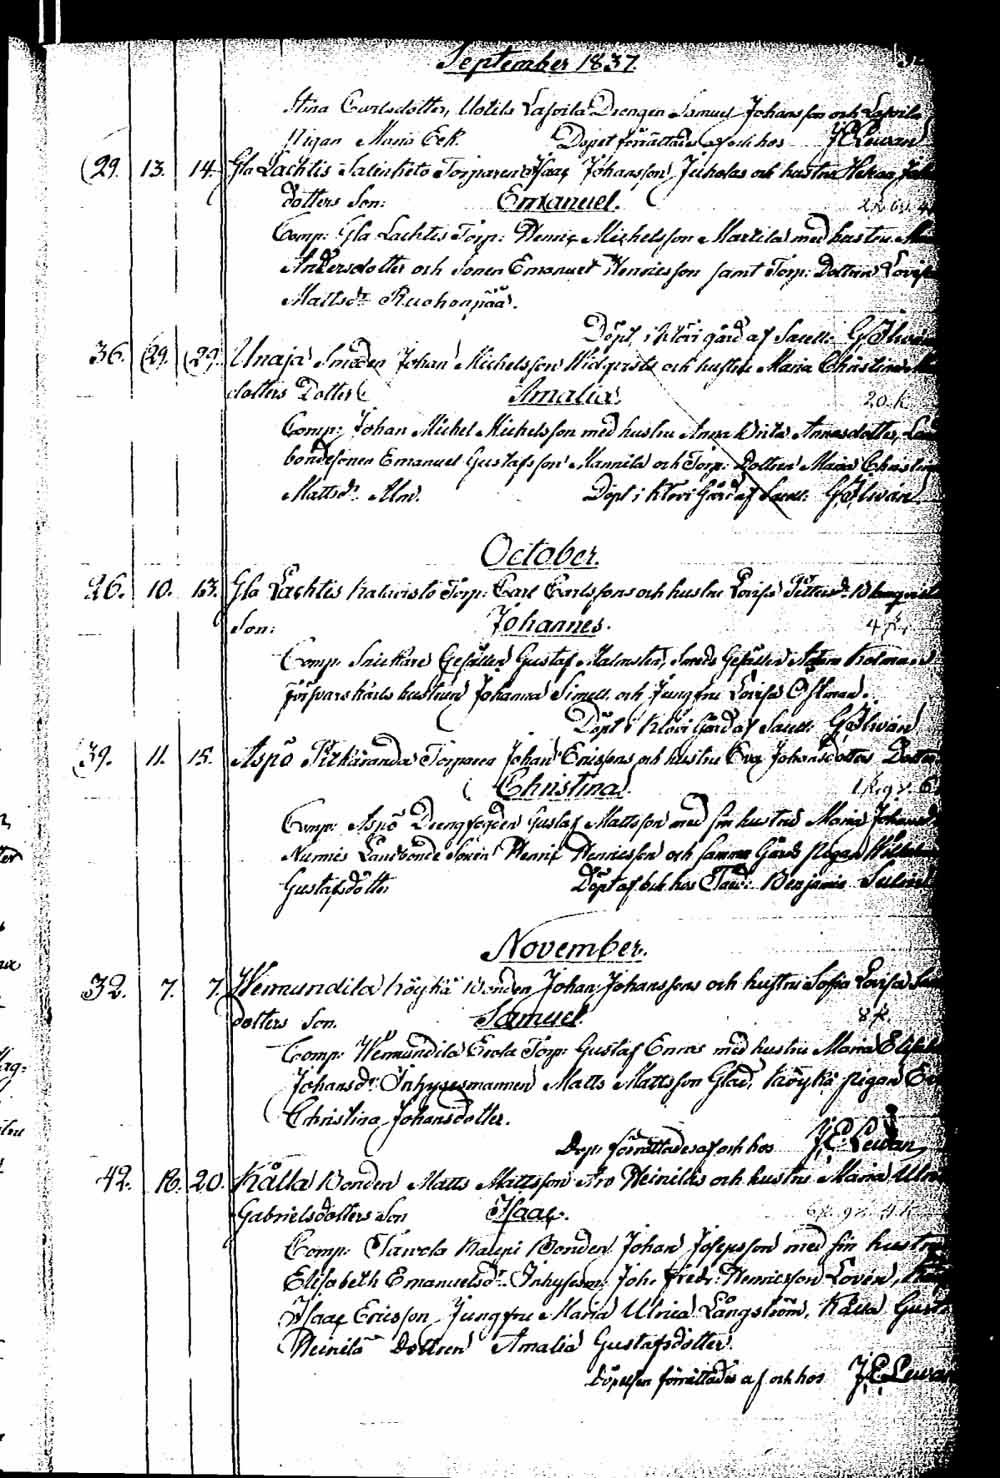 September 1837.
Stina Carlsdotter, Uotila Lassila Drengen Samuel Johansson och Lassila
Pigan Maria Eek. Döpet förrättades af och hos J.E. Lewan
29. 13. 14. Gla Lachtis Salinketo Torparen Isaac Johansson Juholas och hustru
dotters Son: Emanuel.
Comp: Gla Lachtis Torp: Henric Michelsson Martila med hustru
Andersdotter och Sonen Emanuel Henricsson samt Torp: Dottren Lovisa
Mattsdr Ruohonpää.
Döpt i Klövi gård af Sacell: G. Ilwán
36. 29. 29. Unaja Smeden Johan Michelsson Widqvists och hustru Maria Christina
dotters Dotter Amalia. 20 k.
Comp: Johan Michel Michelsson med hustru Anna Brita Annasdotter, Land
bondesonen Emanuel Gustafsson Mannila och Torp: Dottren Maria Christina
Mattsdr. Alm. Döpt i Klövi Gård af Sacell: G. Ilwán
October.
26. 10. 13. Gla Lachtis Kalwisto Torp: Carl Carlssons och hustru Lovisa Pettersdr.
Son: Johannes. 4
Comp: Snickare Gesällen Gustaf Malmsten, Smeds Gesällen Adam Kolman
försvarskarls hustrun Johanna Simell och Jungfru Lovisa Östman.
Döpt i Klövi Gård af Sacell: G. Ilwán
39. 11. 15. Aspö Pirkäranda Torparen Johan Ericssons och hustru Eva Johansdotters Dotter
Christina.
Comp: Aspö Drengfogden Gustaf Mattsson med sin hustru Maria
Nurmis Landbonde Sonen Henric Henricsson och samma Gårds pigan
Gustafsdotter Döpt af och hos Past: Benjamin
November.
32. 7. 7. Wemundila Köykä Bonden Johan Johanssons och hustru Sofia Lovisa
dotters Son. Samuel. 8 k.
Comp: Wemundila Erola Torp: Gustaf Enros med hustru Maria
Johansdr. Inhysesmannen Matts Mattsson Glad, Köykä pigan
Christina Johansdotter.
Döp: förrättades af och hos J.E. Lewan
42. 16. 20. Kålla Bonden Matts Mattsson Iso Heinilös och hustru Maria
Gabrielsdotters Son Isaac.
Comp: Tarvola Kalepi Bonden Johan Josepsson med sin hustru
Elisabeth Emanuelsdr. Inhysesm: Joh: Fredr: Henricsson Loven,
Isaac Ericsson, Jungfru Maria Ulrica Långström, Kålla
Heinilä Dottren Amalia Gustafsdotter.
Döpelsen förrättades af och hos J.E. Lewan